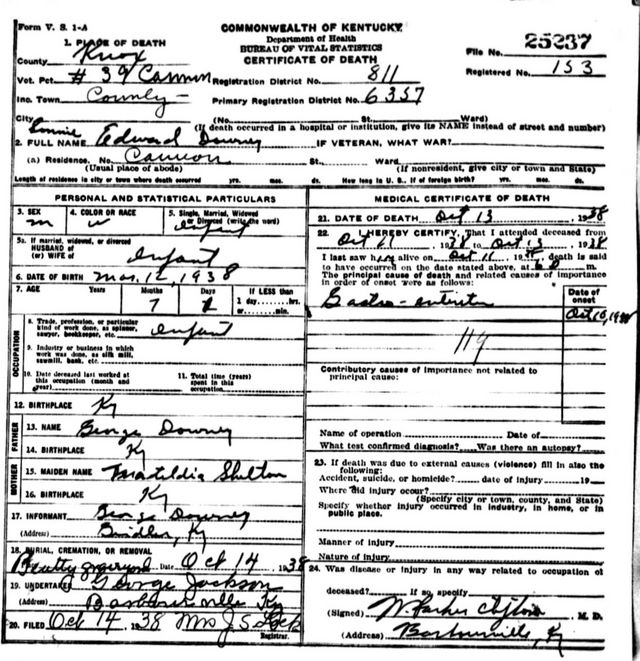 Form V. S. 1-A
COMMONWEALTH OF KENTUCKY
Department of Health
BUREAU OF VITAL STATISTICS
CERTIFICATE OF DEATH
File No. 25237
Registered No. 153
1. PLACE OF DEATH
County Knox
Vot. Pct. # 39 Cannon Registration District No. 811
Inc. Town County Primary Registration District No. 6357
City (No. St. Ward)
(If death occurred in a hospital or institution, give its NAME instead of street and number)
2. FULL NAME Edward Downey IF VETERAN, WHAT WAR?
(a) Residence. No. Cannon St. Ward
(Usual place of abode) (If nonresident, give city or town and State)
Length of residence in city or town where death occurred yrs. mos. ds. How long in U. S., if of foreign birth? yrs. mos. ds.
PERSONAL AND STATISTICAL PARTICULARS
3. SEX 4. COLOR OR RACE 5. Single, Married, Widowed or Divorced (write the word)
m w infant
5a. If married, widowed, or divorced
HUSBAND of
(or) WIFE of infant
6. DATE OF BIRTH Mar. 12, 1938
7. AGE Years Months Days If LESS than
7 1 1 day hrs.
or min.
OCCUPATION
8. Trade, profession, or particular
kind of work done, as spinner,
sawyer, bookkeeper, etc. infant
9. Industry or business in which
work was done, as silk mill,
sawmill, bank, etc.
10. Date deceased last worked at
this occupation (month and
year)
11. Total time (years)
spent in this
occupation
12. BIRTHPLACE Ky
FATHER
13. NAME George Downey
14. BIRTHPLACE Ky
MOTHER
15. MAIDEN NAME Matildia Shelton
16. BIRTHPLACE Ky
17. INFORMANT George Downey
(Address) Ky
18. BURIAL, CREMATION, OR REMOVAL
Date Oct 14 1938
19. UNDERTAKER George Jackson
(Address) Barbourville Ky
20. FILED Oct 14 1938 Mrs J S
Registrar.
MEDICAL CERTIFICATE OF DEATH
21. DATE OF DEATH Oct 13, 1938
22. I HEREBY CERTIFY, That I attended deceased from
Oct 11, 1938 to Oct 13, 1938
I last saw h alive on Oct 11, 19 , death is said
to have occurred on the date stated above, at m.
The principal cause of death and related causes of importance
in order of onset were as follows:
Date of
onset
Gastro-enteritis Oct 10, 1938
119
Contributory causes of importance not related to
principal cause:
Name of operation Date of
What test confirmed diagnosis? Was there an autopsy?
23. If death was due to external causes (violence) fill in also the
following:
Accident, suicide, or homicide? date of injury 19
Where did injury occur?
(Specify city or town, county, and State)
Specify whether injury occurred in industry, in home, or in
public place.
Manner of injury
Nature of injury
24. Was disease or injury in any way related to occupation of
deceased? If so, specify
(Signed) W. Parker M. D.
(Address) Barbourville, Ky